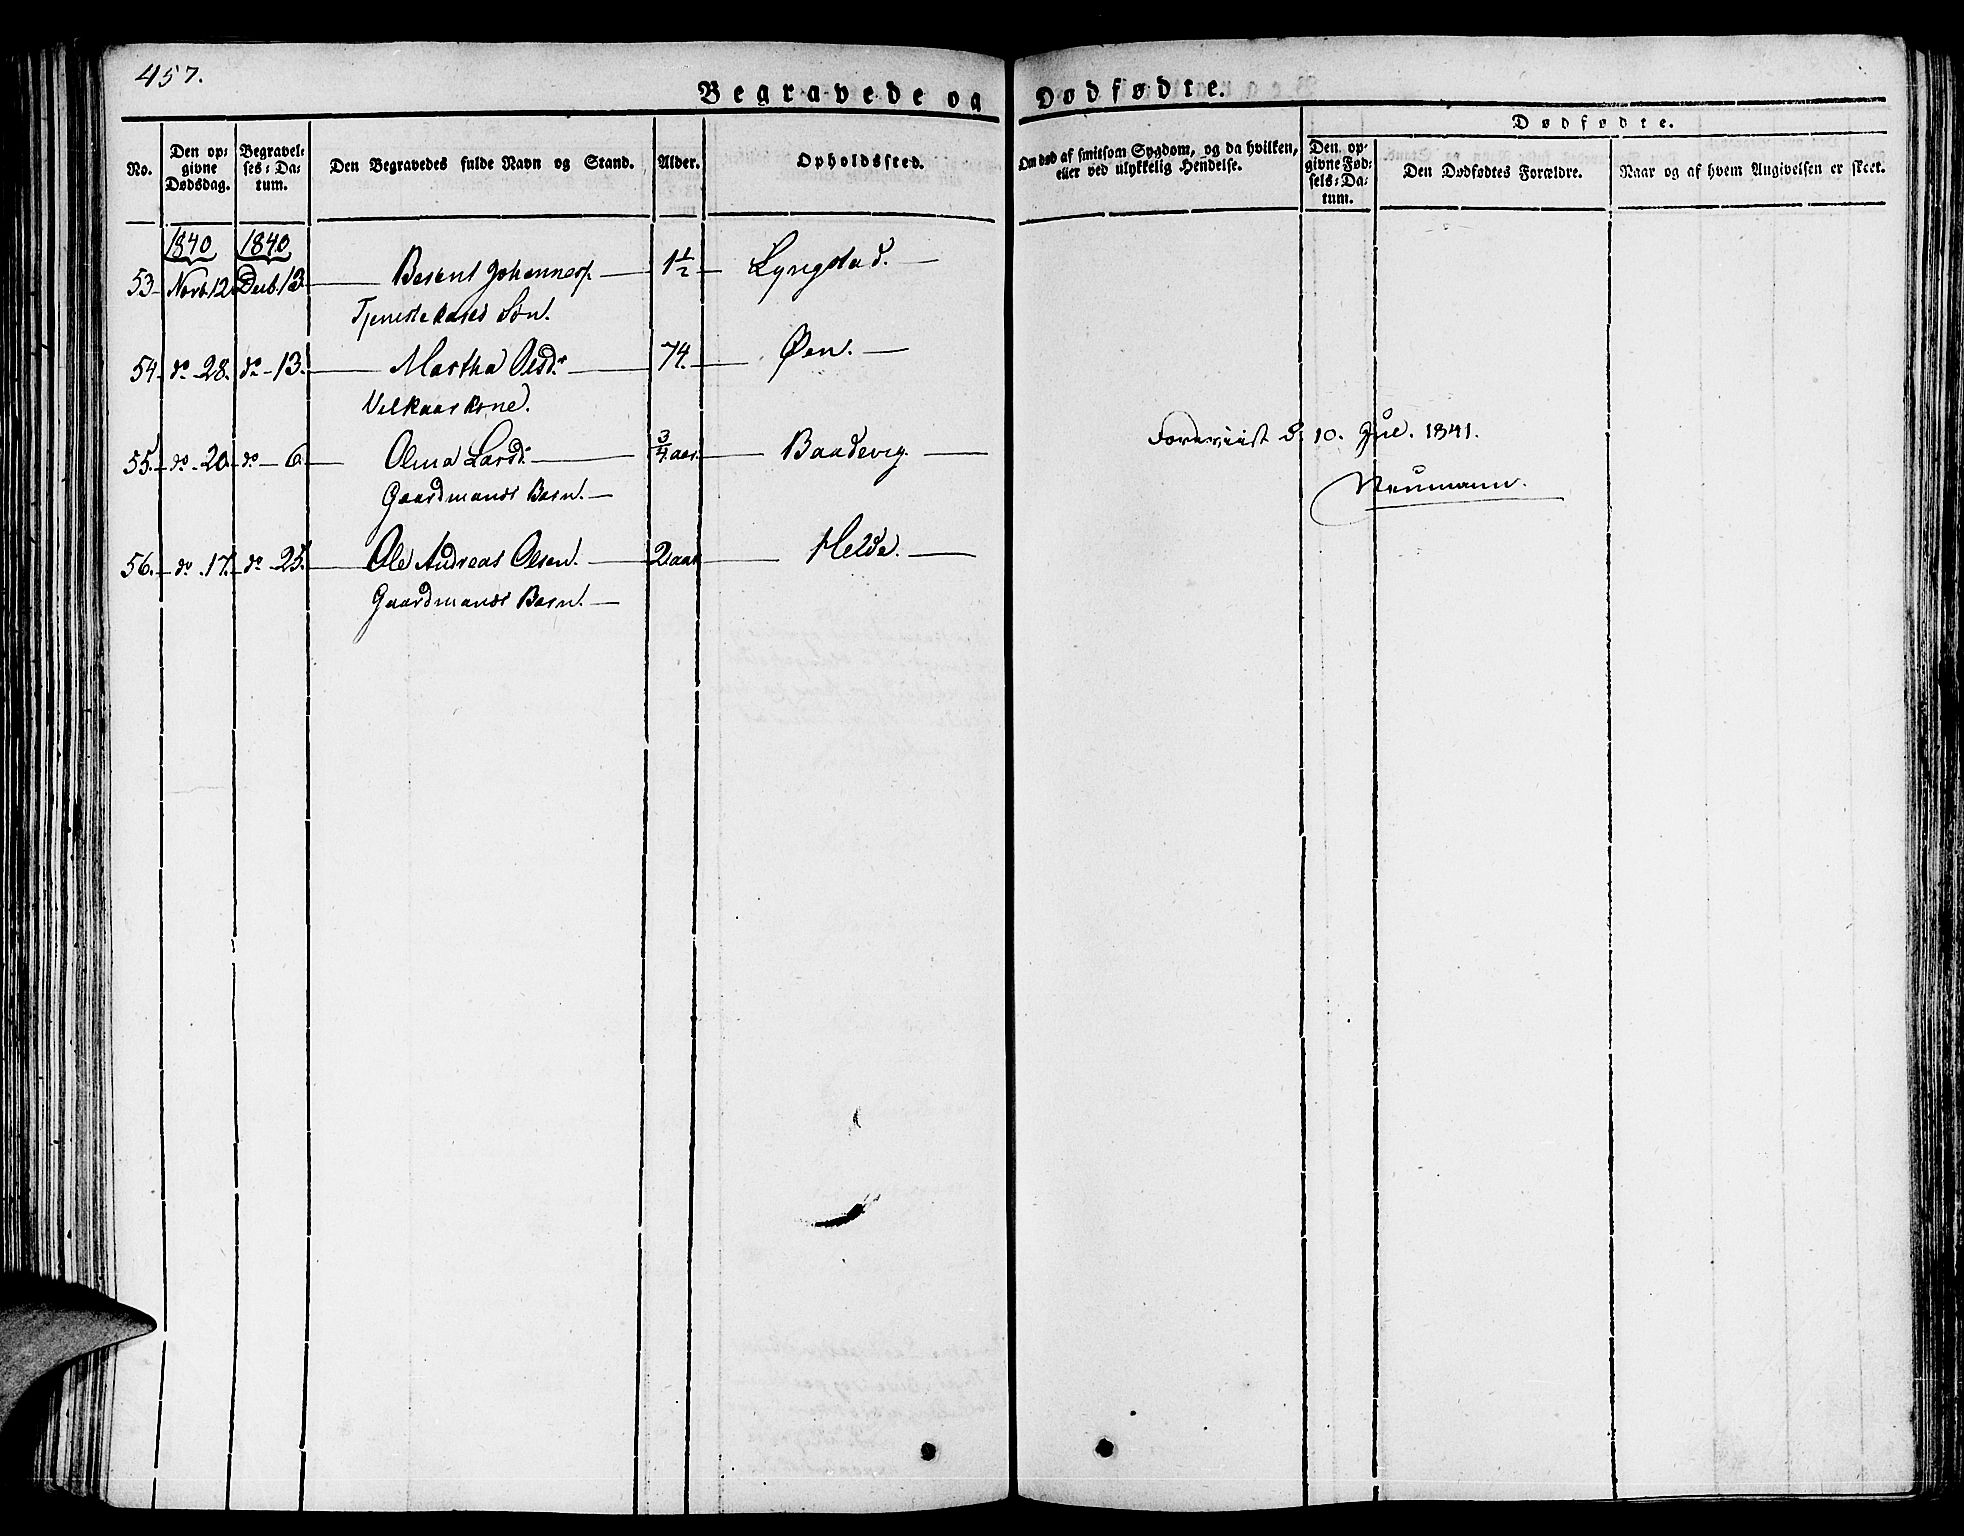 457.
Begravede og Dødfødte.
No.
Den opgivne Dødsdag.
Begravelses-Datum.
Den Begravedes fulde Navn og Stand.
Alder.
Opholdssted.
Om død af smitsom Sygdom, og da hvilken, eller ved ulykkelig Hendelse.
Dødfødte.
Den opgivne Fødsels-Datum.
Den Dødfødtes Forældre.
Naar og af hvem Angivelsen er skeet.
1840 1840
53 Novb. 12 Decb. 13 Berent Johanness. 1½ Lyngstad.
Tjenestekarls Søn.
54 do 28. do 13. Martha Olsdr 74. Øen.
Vilkaarskone.
55. do 20 do 6 Olina Larsdr ¾ aar. Baadevig.
Gaardmands Barn.
56. do 17. do 25. Ole Andreas Olsen. 2 aar Helde.
Gaardmands Barn.
Foreviist d. 10. Jul. 1841.
Neumann.